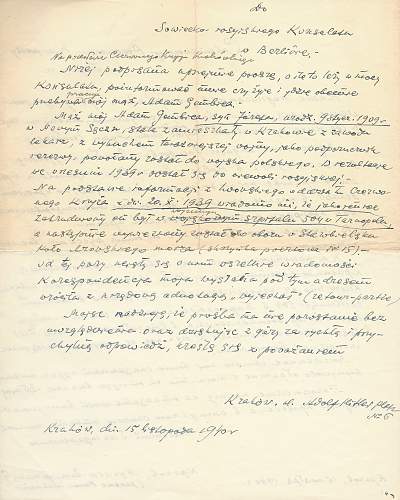 Do
Sowiecko rosyjskiego Konsulatu
w Berlinie.-
Na podstawie Czerwonego Krzyża Krakowskiego
Niżej podpisana uprzejmie proszę, o ile to leży w mocy
Konsulatu, poinformować mnie czy żyje i gdzie obecnie
przebywa mój mąż, Adam
Mąż mój Adam syn Józefa, urodz. 1909 r.
w Nowym Sączu, stale zamieszkały w Krakowie z zawodu
lekarz, z wybuchem teraźniejszej wojny, jako podporucznik
rezerwy, powołany został do wojska polskiego. W rezultacie
we wrześniu 1939 dostał się do niewoli rosyjskiej.-
Na podstawie informacji z lwowskiego oddziału Czerwo-
nego Krzyża z dn. 20.XI.1939 wiadomo mi, że jako lekarz
zatrudniony on był w wojskowym szpitalu w Tarnopolu,
a następnie wywieziony został do obozu w Starobielsku
koło Azowskiego morza (skrzynka pocztowa Nr 15).-
Od tej pory nie mam o nim wszelkie wiadomości
Korespondencja moja wysłana pod tym adresem
wróciła z urzędową adnotacją "wyjechał" (retour-parti)
Mając nadzieję, że prośba ta nie pozostanie bez
uwzględnienia oraz dziękując z góry za rychłą i przy-
chylną odpowiedź, kreślę się z poważaniem
Kraków, ul. Adolf Hitler Platz
Nr 6
Kraków, dn. 15 listopada 1940 r